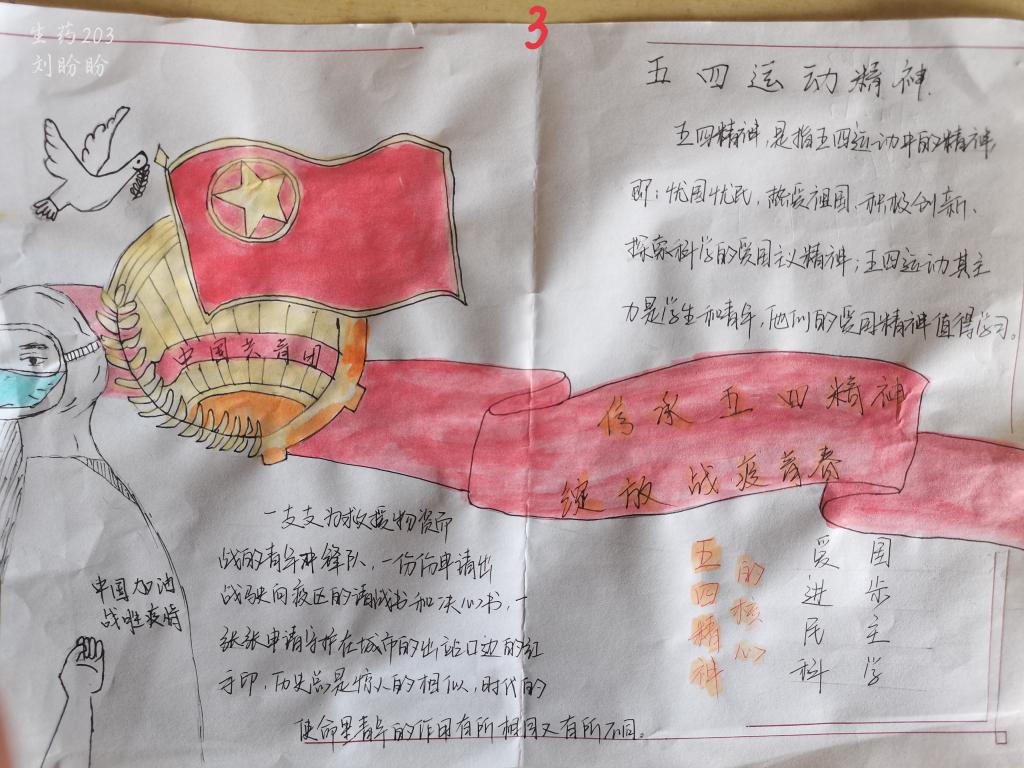 生药203
刘盼盼
3
五四运动精神
五四精神,是指五四运动中的精神
即:忧国忧民、热爱祖国、积极创新、
探索科学的爱国主义精神;五四运动其主
力是学生和青年,他们的爱国精神值得学习。
中国共青团
传承五四精神
绽放战疫青春
一支支为救援物资而
战的青年冲锋队,一份份申请出
战驶向疫区的请战书和决心书,一
张张申请守护在城市的出站口边的红
手印,历史总是惊人的相似,时代的
使命里青年的作用有所相同又有所不同。
中国加油
战胜疫情
五四精神
的核心
爱国
进步
民主
科学